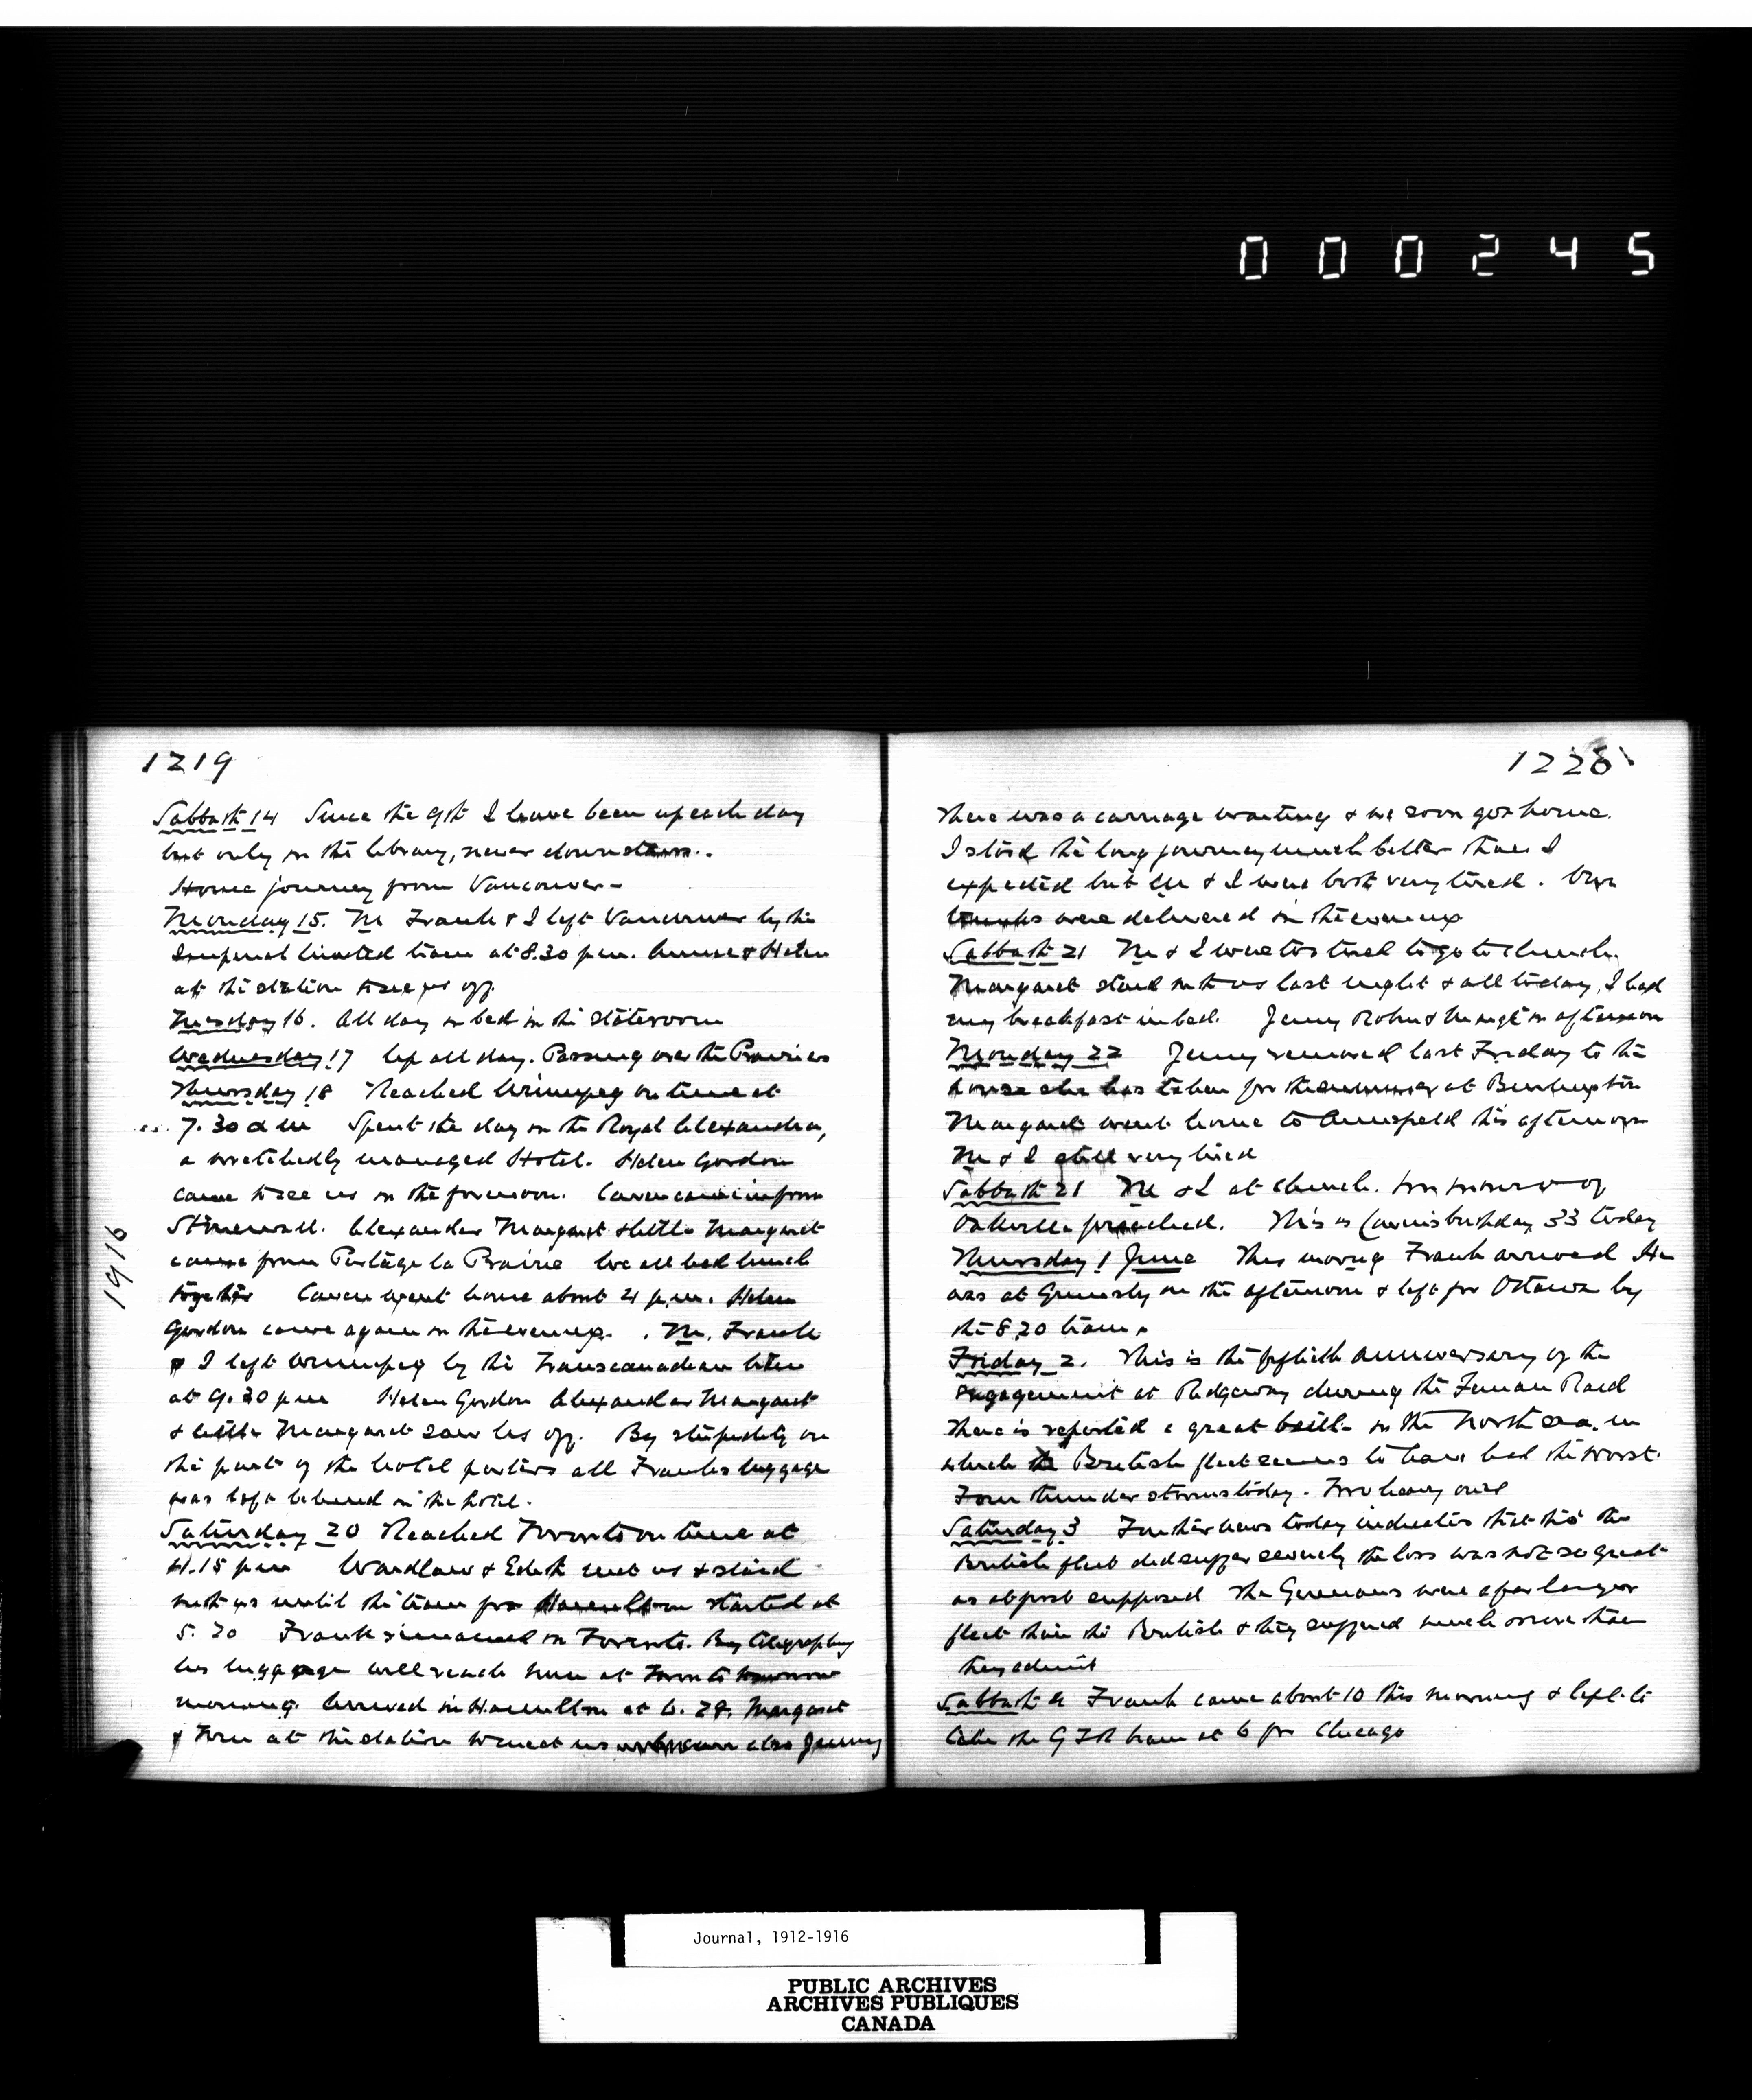 000245
1219
Sabbath 14 Since the 9th I have been up each day
but only in the library, never downstairs.
Home journey from Vancouver -
Monday 15. M Frank & I left Vancouver by the
Imperial limited train at 8.30 p.m. Annie & Helen
at the station to see us off.
Tuesday 16. All day in bed in the stateroom
Wednesday 17 Up all day. Passing over the Prairies
Thursday 18 Reached Winnipeg on time at
7.30 a m Spent the day in the Royal Alexandra,
a wretchedly managed Hotel. Helen Gordon
came to see us in the forenoon. Caven came in from
Stonewall. Alexander Margaret & little Margaret
came from Portage la Prairie We all had lunch
together Caven went home about 4 p.m. Helen
Gordon came again in the evening. M. Frank
& I left Winnipeg by the Transcanadian
at 9.30 p m Helen Gordon Alexander Margaret
& little Margaret saw us off. By stupidity on
the part of the hotel porters all Franks luggage
was left behind in the hotel.
Saturday 20 Reached Toronto on time at
4.15 p m Wardlaw & Edith met us & staid
with us until the train for Hamilton started at
5.20 Frank remained in Toronto. By telegraphing
his luggage will reach him at Toronto tomorrow
morning. Arrived in Hamilton at 6.28. Margaret
& Tom at the station to meet us also Jenny
1916
1220
There was a carriage waiting & we soon got home.
I stood the long journey much better than I
expected but M & I were both very tired. Our
trunks were delivered in the evening
Sabbath 21 M & I were too tired to go to Church.
Margaret staid with us last night & all today, I had
my breakfast in bed. Jenny in afternoon
Monday 22 Jenny removed last Friday to the
house she has taken for the summer at Burlington
Margaret went home to Annisfield this afternoon
M & I still very tired
Sabbath M & I at church. of
Oakville preached. This is Caven's birthday 33 today
Thursday 1 June This morng Frank arrived He
was at Grimsby in the afternoon & left for Ottawa by
the 8.20 train.
Friday 2. This is the fiftieth anniversary of the
engagement at Ridgeway during the Fenian Raid
There is reported a great battle in the North sea, in
which the British fleet seems to have had the worst.
Four thunder storms today. Two heavy ones
Saturday 3 Further news today indicates that tho' the
British fleet did suffer severely the loss was not so great
as at first supposed The Germans were a far larger
fleet than the British & they suffered much more than
they admit
Sabbath 4 Frank came about 10 this morning & left to
take the GTR train at 6 for Chicago
Journal, 1912-1916
PUBLIC ARCHIVES
ARCHIVES PUBLIQUES
CANADA